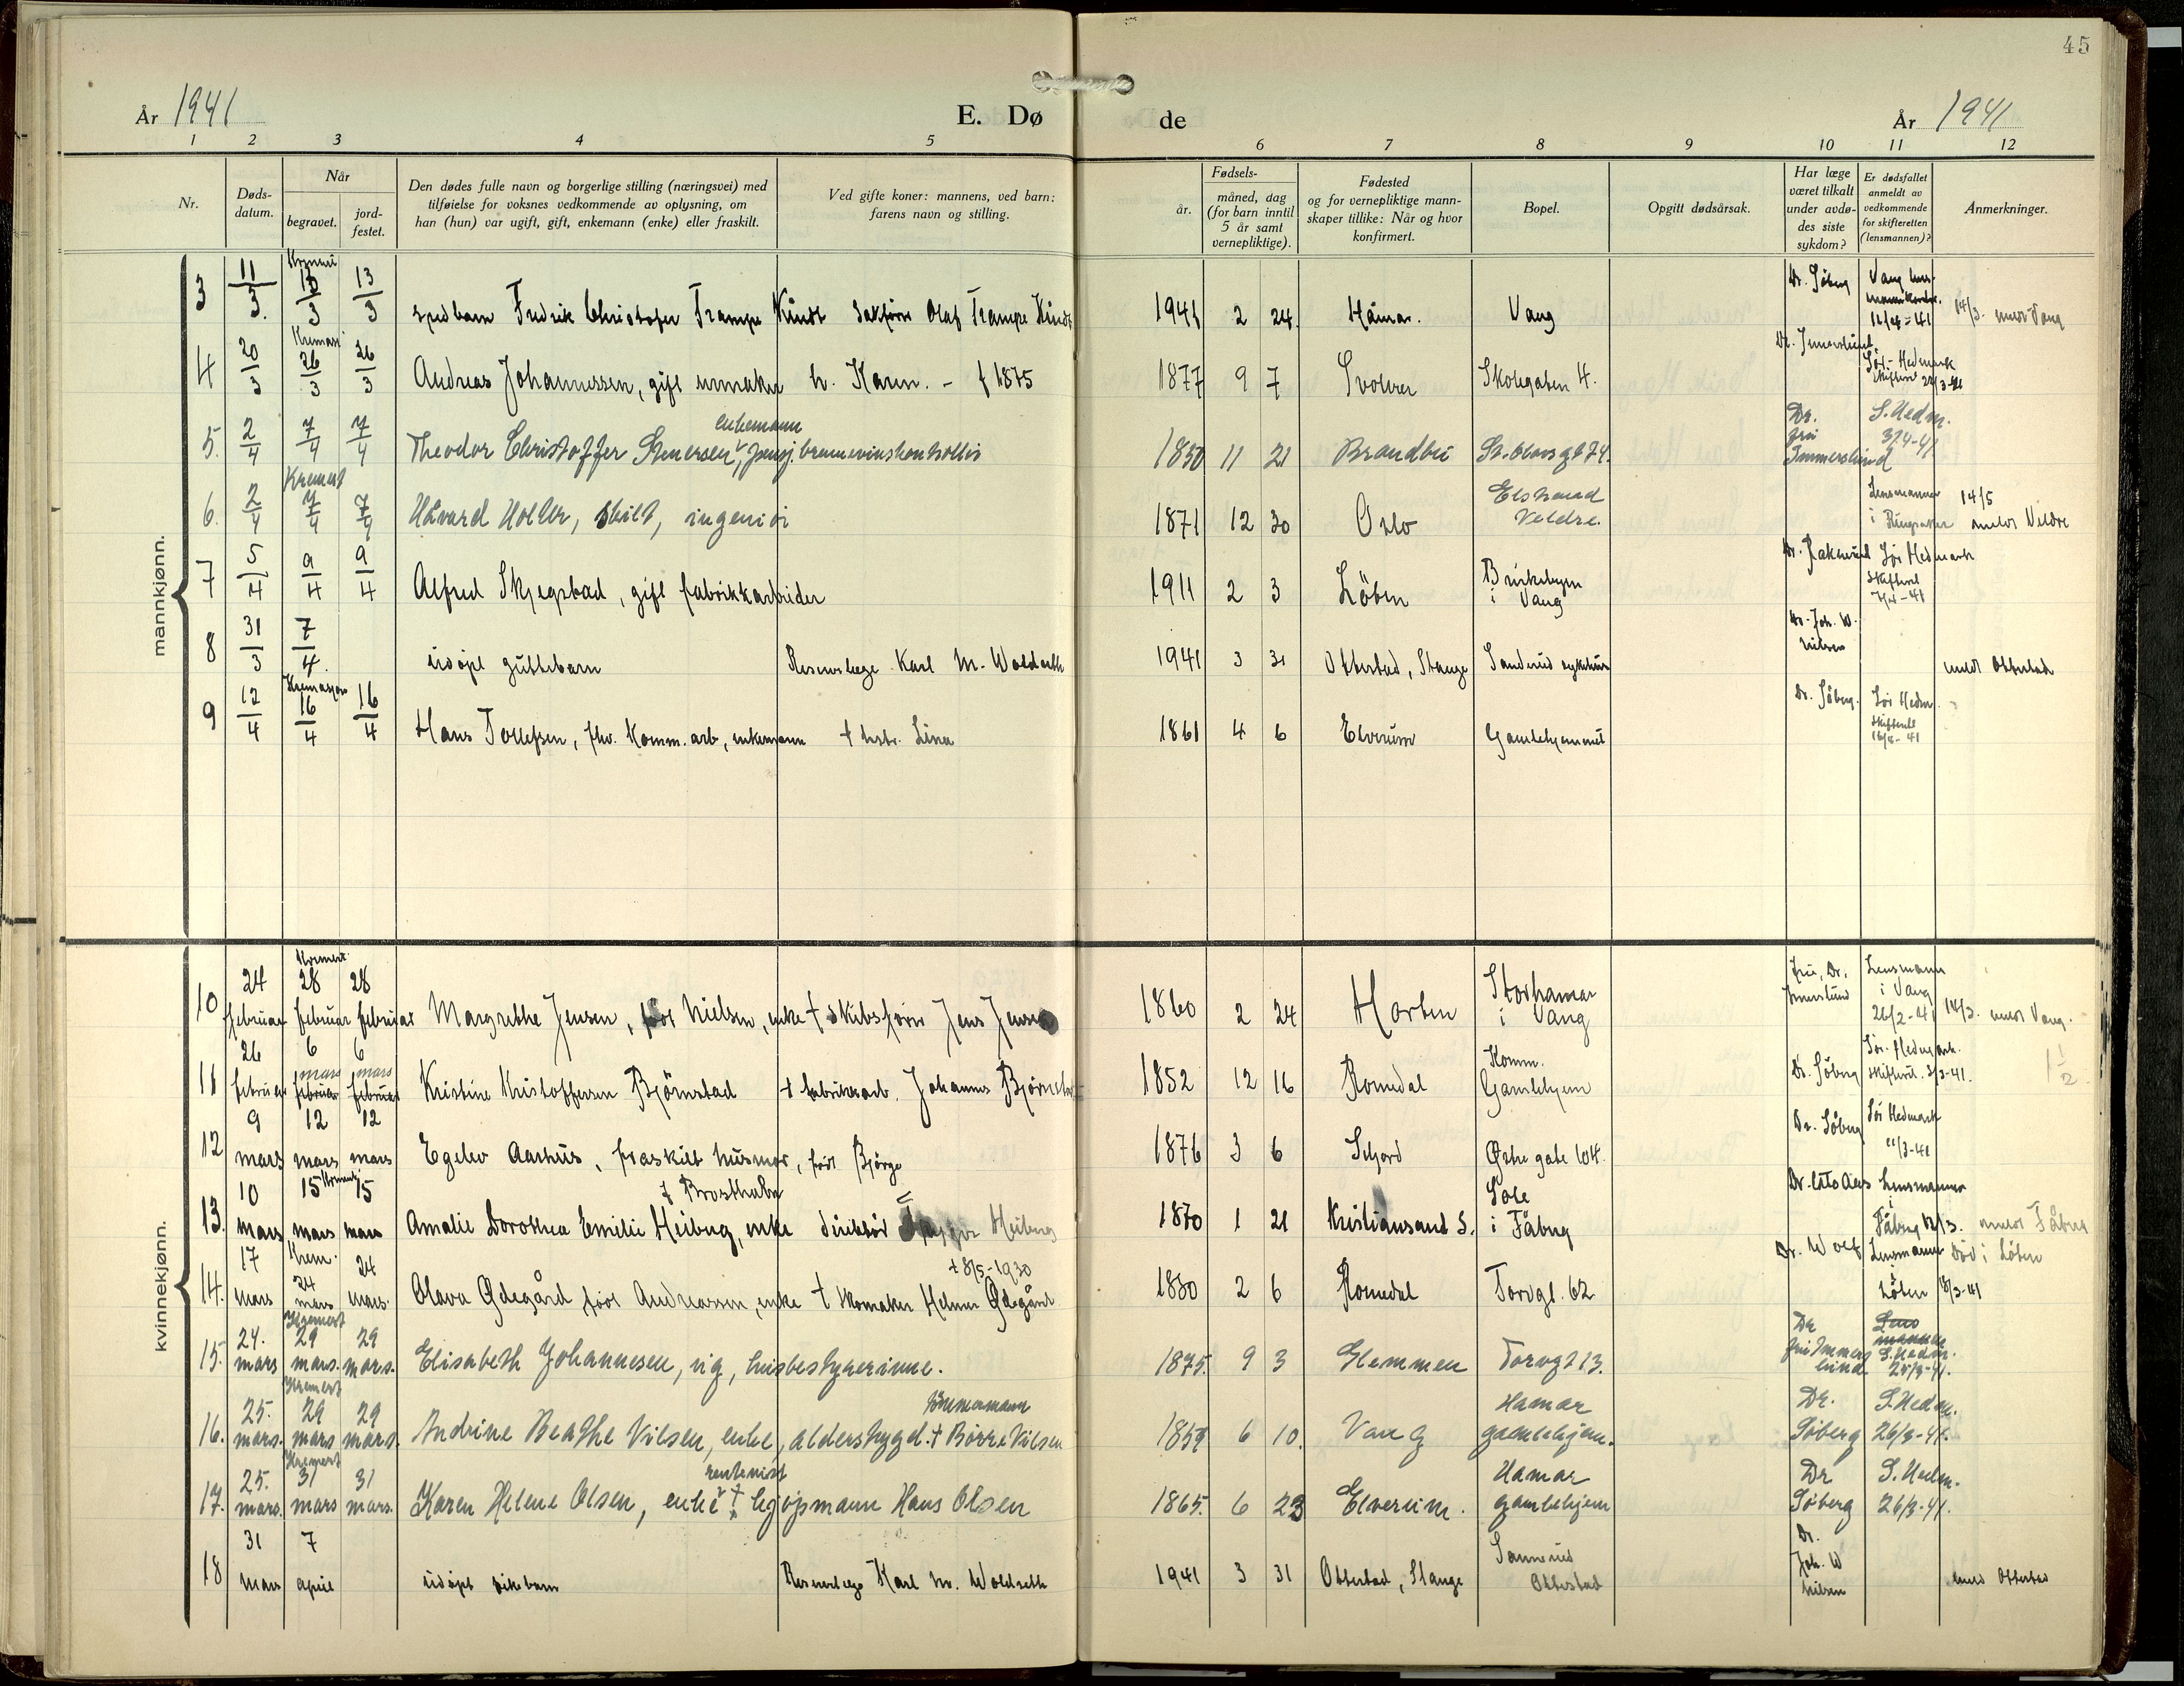 45
År 1941
E. Dø
de
År 1941
1 2 3 4 5 6 7 8 9 10 11 12
Nr.
Døds-
datum.
Når
begravet.
jord-
festet.
Den dødes fulle navn og borgerlige stilling (næringsvei) med
tilføielse for voksnes vedkommende av oplysning, om
han (hun) var ugift, gift, enkemann (enke) eller fraskilt.
Ved gifte koner: mannens, ved barn:
farens navn og stilling.
Fødsels-
år.
måned, dag
(for barn inntil
5 år samt
vernepliktige).
Fødested
og for vernepliktige mann-
skaper tillike: Når og hvor
konfirmert.
Bopel.
Opgitt dødsårsak.
Har læge
været tilkalt
under avdø-
des siste
sykdom?
Er dødsfallet
anmeldt av
vedkommende
for skifteretten
(lensmannen)?
Anmerkninger.
mannkjønn.
3 11/3 13/3 13/3 spedbarn Fredrik Christofer Trampe Kindt Sakfører Olaf Trampe Kindt 1941 2 24. Hamar. Vang Dr. Söberg Vang 14/3. meldt Vang
4 20/3 Kremasj 26/3 26/3 Andreas Johannessen, gift urmaker h. Karen. - f 1875 1877 9 7 Svolvær Skolegaten 4. Sör-Hedmark
5. 2/4 7/4 7/4 Theodor Christoffer Stenersen, enkemann pensj. 1850 11 21 Brandbu St. Olavs gt 74. Dr. fru Immerslund S. Hedm. 3/4-41
6. 2/4 Kremert 7/4 7/4 Håvard Holter, skilt, ingeniør 1871 12 30 Oslo Veldre. Lensmannen i Ringsaker 14/5 meldt Veldre
7 5/4 9/4 9/4 Alfred Skjegstad, gift fabrikkarbeider 1911 2 3 Löten i Vang Sör Hedmark
8 31/3 7/4. udöpt guttebarn Reservelæge Karl M. Woldseth 1941 3 31 Ottestad, Stange Sanderud sykehus Dr. Joh. W. Nilsen meldt Ottestad
9 12/4 Kremasjon 16/4 16/4 Hans Tollefsen, fhv. komm. arb, enkemann † hstr. Lina 1861 4 6 Elverum Gamlehjemmet Dr. Söberg. Sör Hedm.
kvinnekjønn.
10 24 februar Kremert 28 februar 28 februar Margrethe Jensen, född Nielsen, enke † skibsförer Jens Jensen 1860 2 24 Horten Storhamar i Vang Fru, Dr. Immerslund Lensmann i Vang 26/2-41 14/3. meldt Vang.
11 26 februar 6 mars 6 mars Kristine Kristoffersen Björnstad † fabrikkarb. Johannes Björnstad 1852 12 16 Romedal Komm. Gamlehjem Dr. Söberg Sör-Hedmark. 1 1/2
12 9 mars 12 mars 12 mars Egelev Aarhus, fraskilt husmor, född Björge 1876 3 6 Seljord Østre gate 104. Dr. Söberg Sör Hedmark 11/3-41
13. 10 mars 15 mars 15 mars Amalie Dorothea Emilie Heiberg, enke direktör Heiberg 1870 1 21 Kristiansand S. i Fåberg Lensmannen i Fåberg 12/3. meldt Fåberg
14. 17 mars Krem. 24 mars 24 mars. Olava Ødegård född Andreassen, enke † skomaker Helmer Ødegård † 8/5-1930 1880 2 6 Romedal Torvgt. 62 Dr. Wolf Lensmannen i Löten 18/3-41 Död i Löten
15. 24. mars Kremert 29 mars. 29 mars. Elisabeth Johannesen, ug, husbestyrerinne. 1875. 9 3 Glemmen Torvgt 13. Dr fru Immerslund S. Hedm. 25/3-41.
16. 25. mars. Kremert 29 mars 29 mars. Andrine Beathe Nilsen, enke, alderstrygd. † Börre Nilsen 1859 6 10. Vang Hamar gamlehjem. Dr. Söberg S. Hedm. 26/3-41.
17. 25. mars. Kremert 31 mars 31 mars. Karen Helene Olsen, enke rentenist † kjøpmann Hans Olsen 1865. 6 23 Elverum. Hamar gamlehjem Dr Söberg S. Hedm. 26/3-41.
18 31 mars 7 april udöpt pikebarn Reservelæge Karl M. Woldseth 1941 3 31 Ottestad, Stange Sanderud Ottestad Dr. Joh. W Nilsen meldt Ottestad